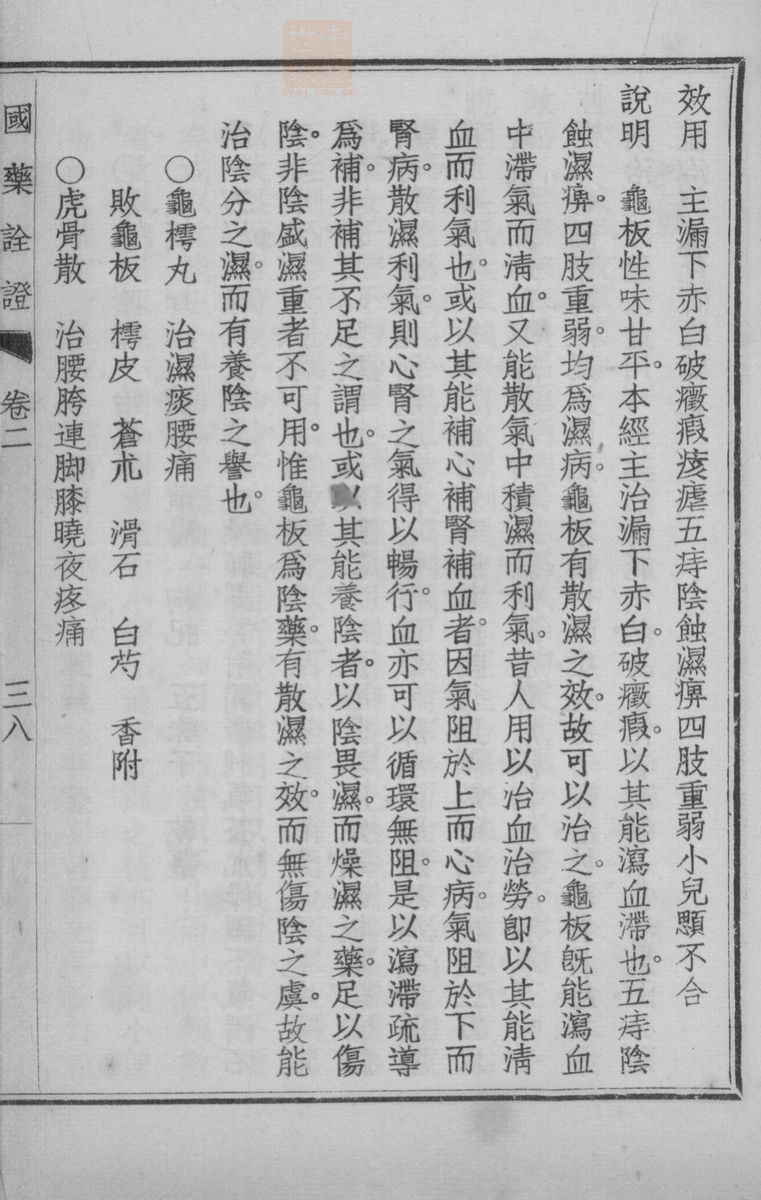 效用　主漏下赤白破癥瘕痎瘧五痔陰蝕濕痹四肢重弱小兒顖不合
說明　龜板性味甘平。本經主治漏下赤白。破癥瘕。以其能瀉血滯也。五痔陰
蝕濕痹。四肢重弱。均爲濕病。龜板有散濕之效。故可以治之。龜板旣能瀉血
中滯氣而淸血。又能散氣中積濕而利氣。昔人用以治血治勞。卽以其能淸
血而利氣也。或以其能補心補腎補血者。因氣阻於上而心病。氣阻於下而
腎病。散濕利氣。則心腎之氣得以暢行。血亦可以循環無阻。是以瀉滯疏導
爲補。非補其不足之謂也。或以其能養陰者。以陰畏濕。而燥濕之藥。足以傷
陰。非陰盛濕重者不可用。惟龜板爲陰藥。有散濕之效。而無傷陰之虞。故能
治陰分之濕。而有養陰之譽也。
○龜樗丸　治濕痰腰痛
敗龜板　樗皮　蒼朮　滑石　白芍　香附
○虎骨散　治腰胯連脚膝曉夜疼痛
國藥詮證　卷二　三八